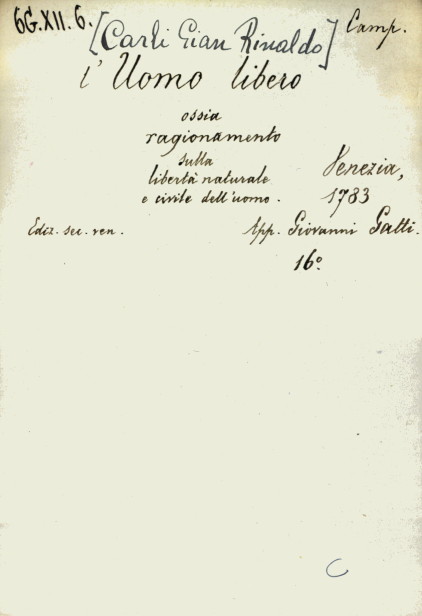 6G.XII.6. [Carli Gian Rinaldo] Camp.
l'Uomo libero
ossia
ragionamento
sulla
libertà naturale Venezia,
e civile dell'uomo. 1783
Ediz. sec. ven. App. Giovanni Gatti.
16º
C